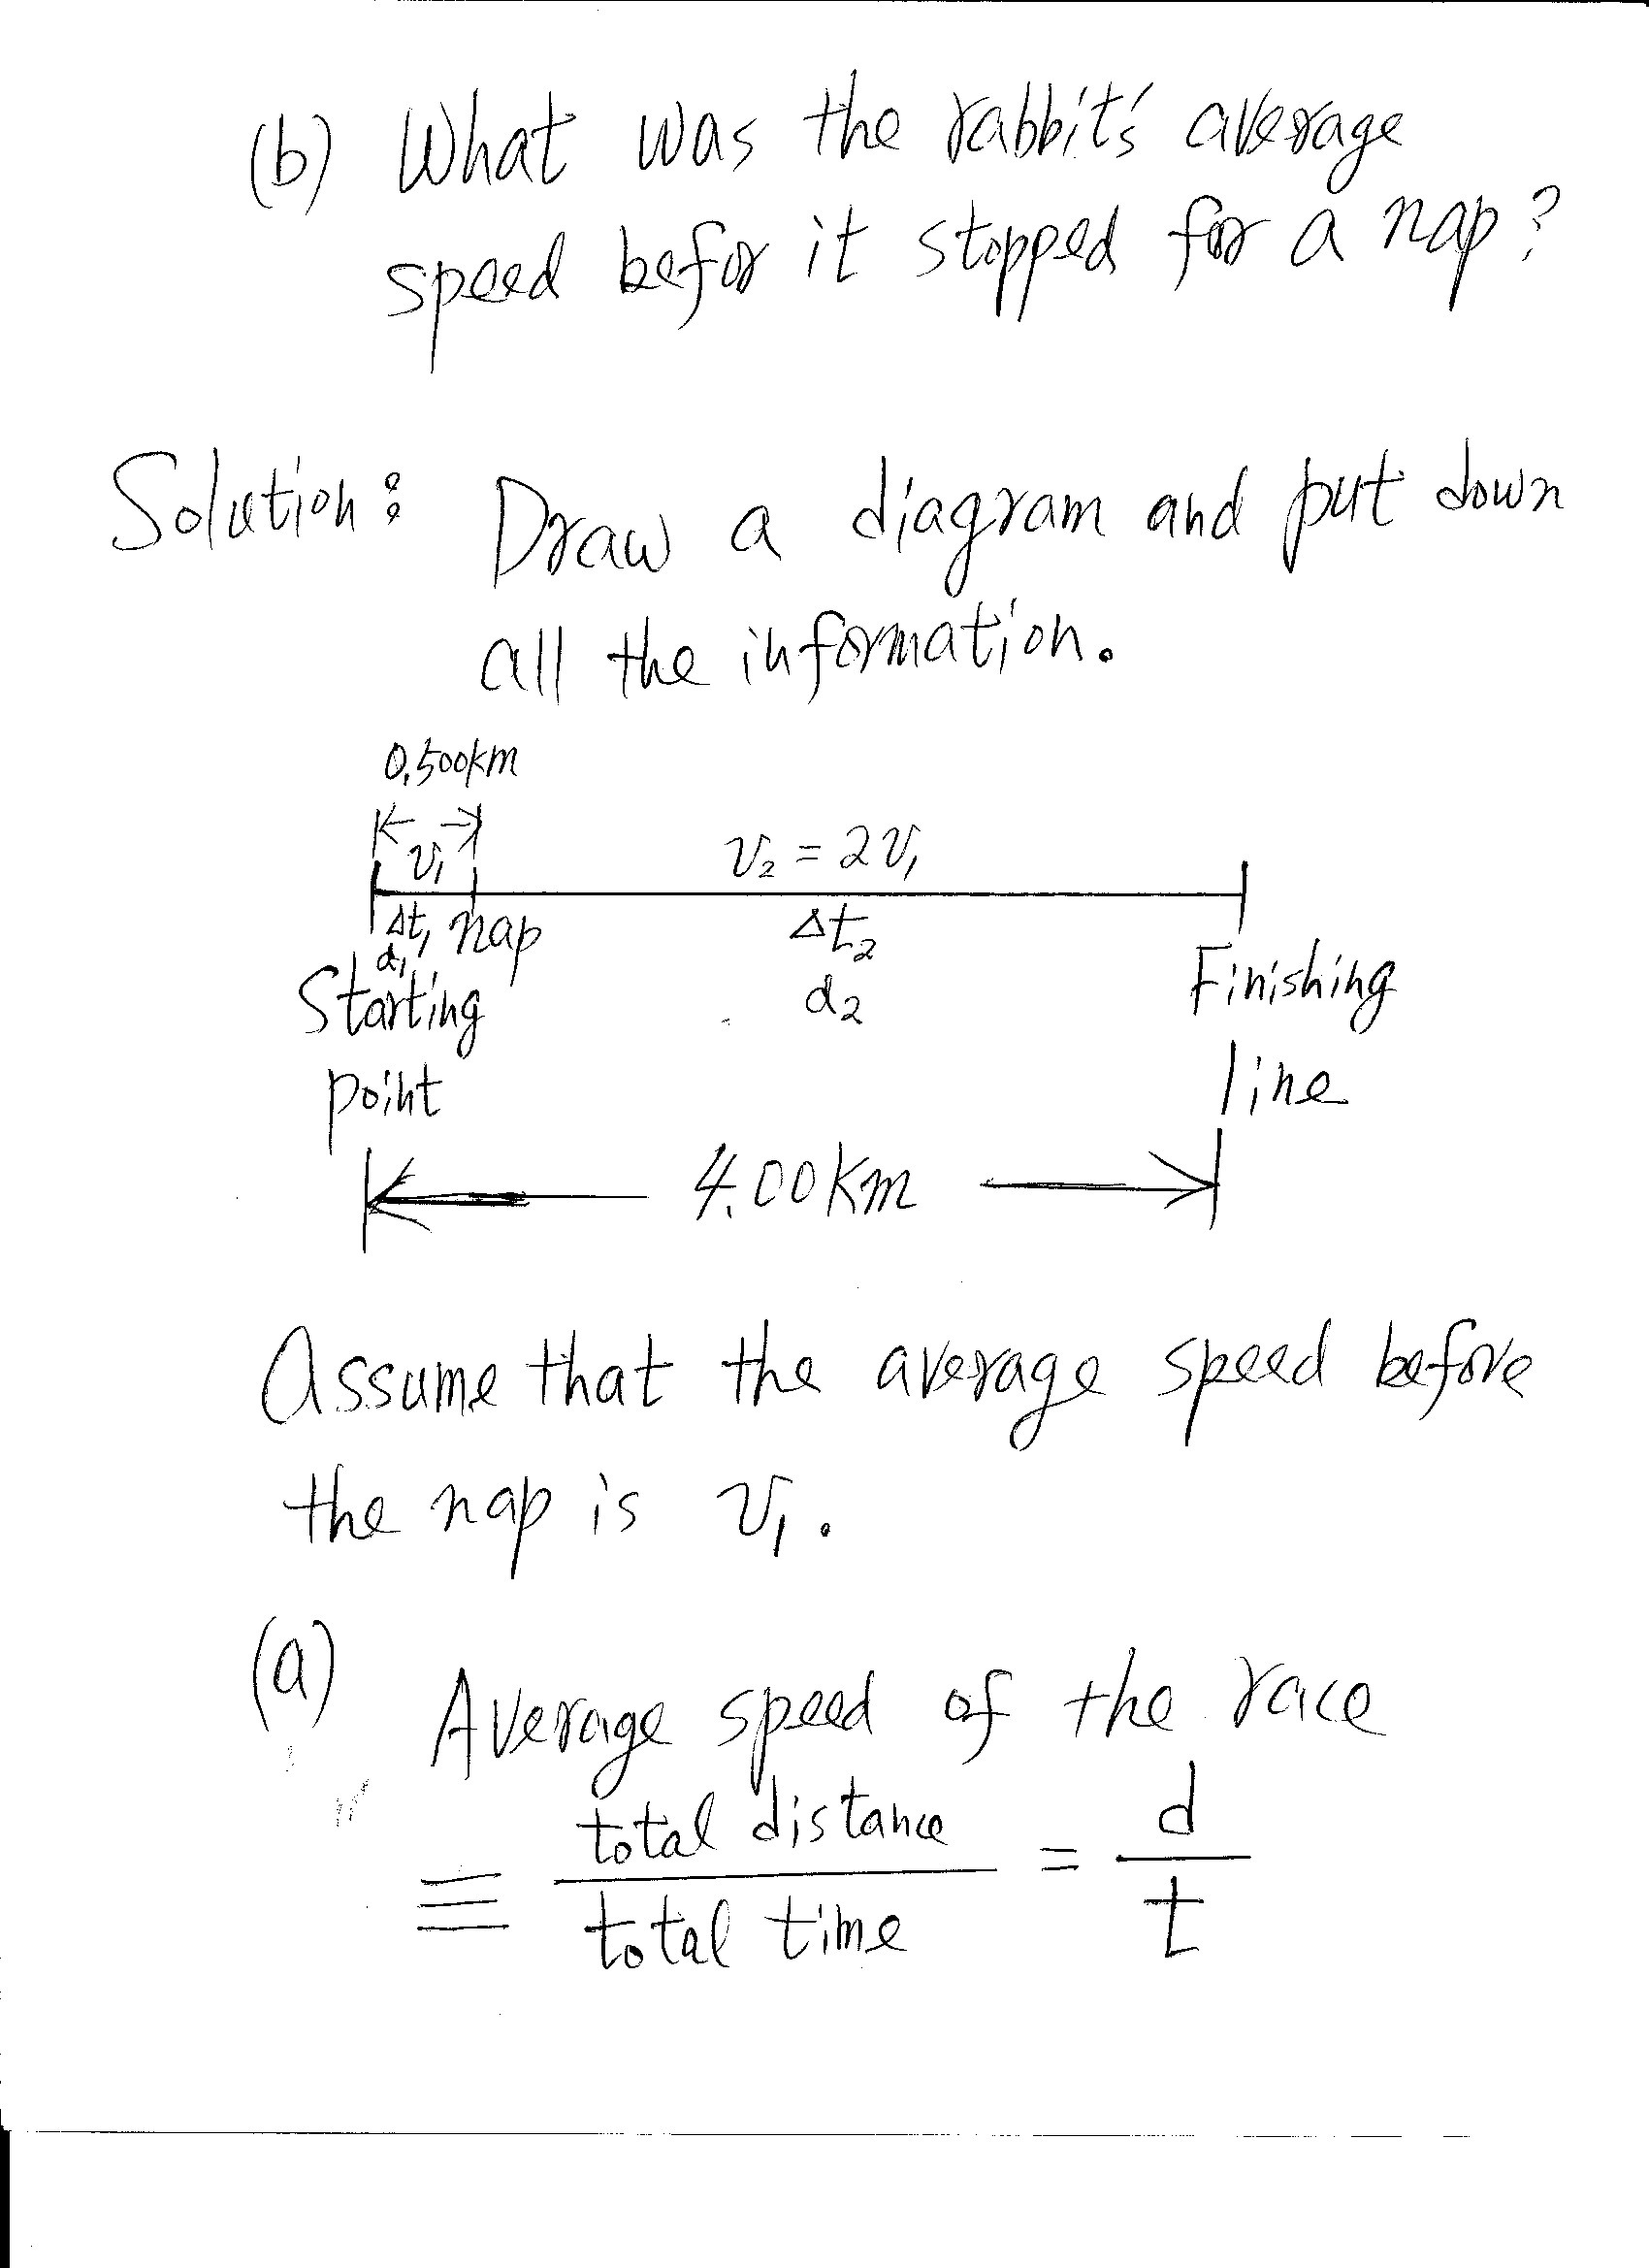 (b) What was the rabbit's average
speed befor it stopped for a nap?
Solution: Draw a diagram and put down
all the information.
0.500km
v₁
v₂ = 2v₁
Δt₁ nap
d₁
Δt₂
d₂
Starting
point
Finishing
line
4.00km
Assume that the average speed before
the nap is v₁.
(a) Average speed of the race
≡ total distance / total time = d / t